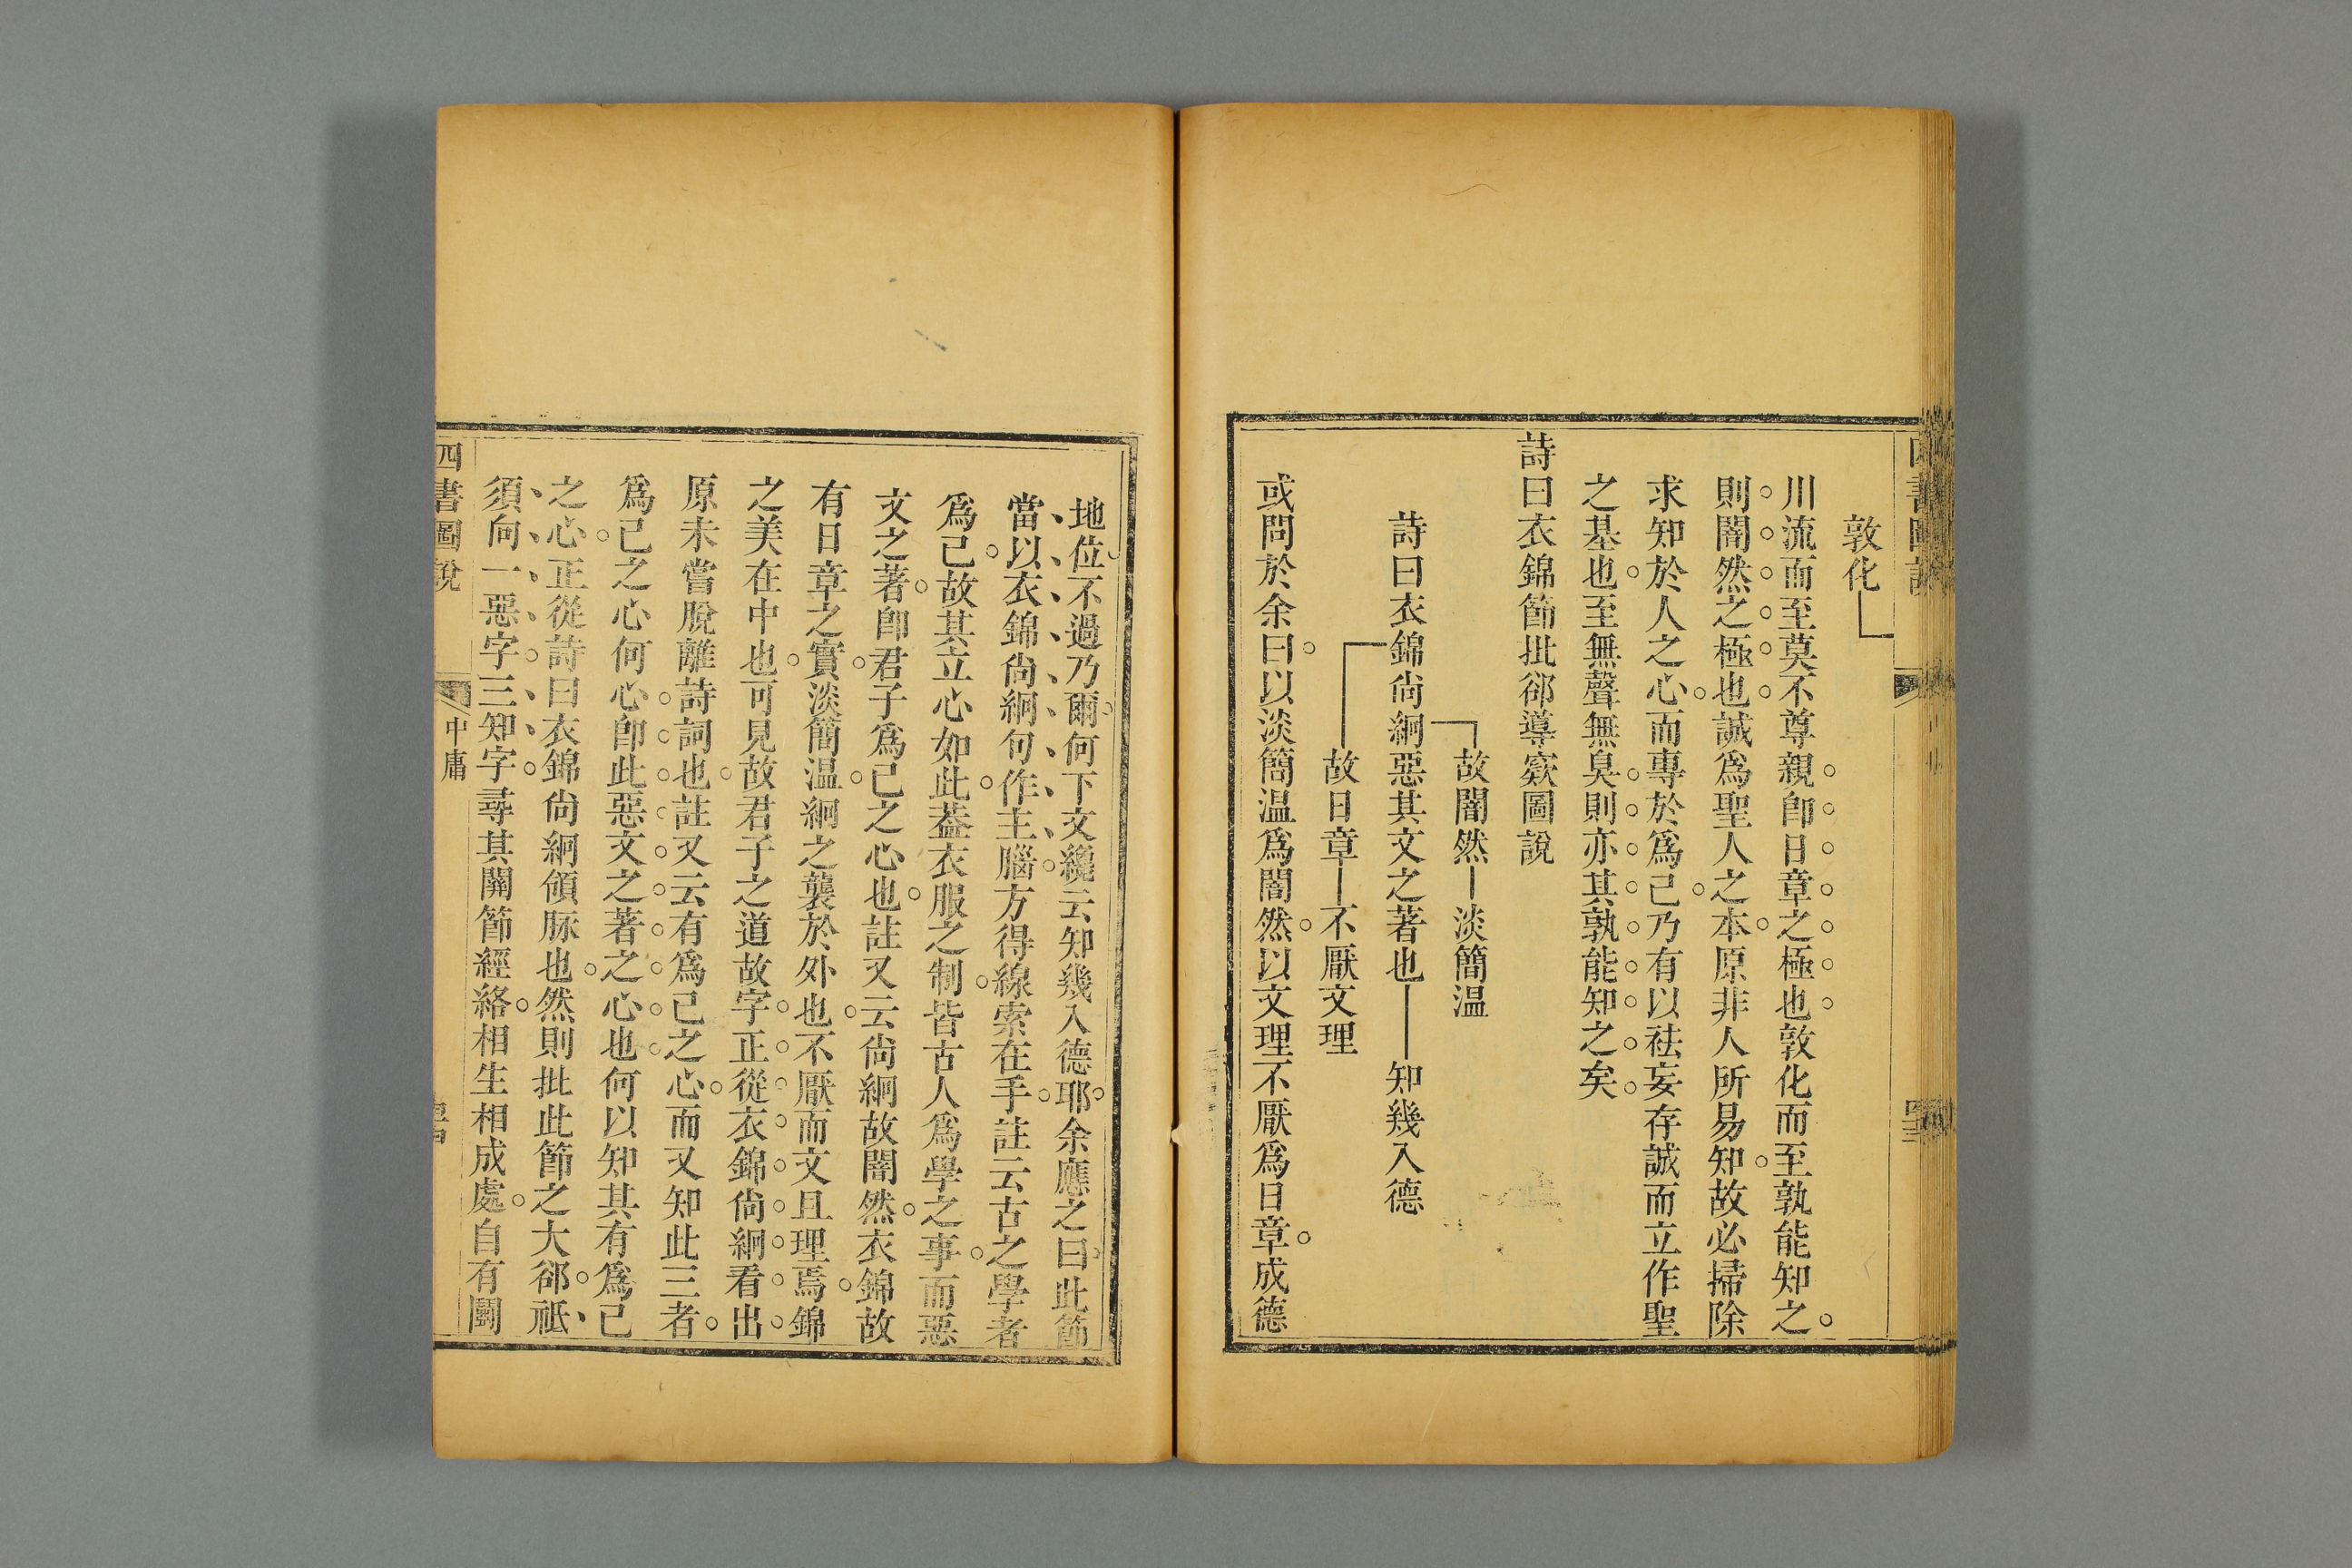 四書圖說
敦化
川流而至莫不尊親卽日章之極也敦化而至孰能知之
則闇然之極也誠爲聖人之本原非人所易知故必掃除
求知於人之心而專於爲己乃有以祛妄存誠而立作聖
之基也至無聲無臭則亦其孰能知之矣
詩曰衣錦節批郤導窾圖說
故闇然 淡簡温
詩曰衣錦尙絅惡其文之著也 知幾入德
故日章 不厭文理
或問於余曰以淡簡温爲闇然以文理不厭爲日章成德
地位不過乃爾何下文纔云知幾入德耶余應之曰此節
當以衣錦尙絅句作主腦方得線索在手註云古之學者
爲己故其立心如此葢衣服之制皆古人爲學之事而惡
文之著卽君子爲己之心也註又云尙絅故闇然衣錦故
有日章之實淡簡温絅之襲於外也不厭而文且理焉錦
之美在中也可見故君子之道故字正從衣錦尙絅看出
原未嘗脫離詩詞也註又云有爲己之心而又知此三者
爲己之心何心卽此惡文之著之心也何以知其有爲己
之心正從詩曰衣錦尙絅領脈也然則批此節之大郤祗
須向一惡字三知字尋其關節經絡相生相成處自有鬬
四書圖說
中庸